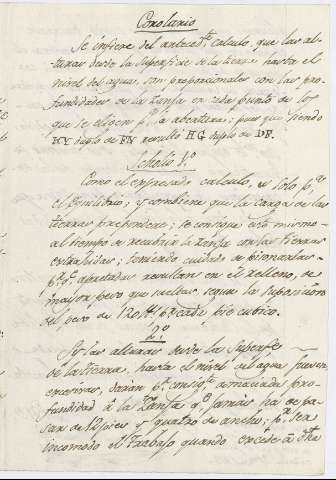 Corolario
Se infiere del anteced.te calculo, que las al-
turas desde la superficie de la tierra hasta el
nivel del agua, son proporcionales con las pro-
fundidades de la zanja en cada punto de los
que se eligen p.a abertura; pues que siendo
HY duplo de FN resulto HG duplo de DF.
Scholio 1.o
Como el expresado calculo, es solo p.a
el equilibrio; y combiene que la carga de las
tierras prepondere; se consigue esto mismo
al tiempo de recubrir la zanja con las tierras
extrahidas; teniendo cuidado de pisonarlas
p.r q.e apretadas resultan en el relleno, de
mayor peso que sueltas, segun la suposicion
del peso de 120 lb. p.r cada pie cubico.
2.o
Si las alturas desde la superfe
de la tierra, hasta el nivel del agua fuesen
excesivas, darán p.r consig.te demaciada pro-
fundidad á la zanja q.e jamás ha de pa-
sar de pies y quatro de ancho; p.r ser
incomodo el trabajo quando excede á dha